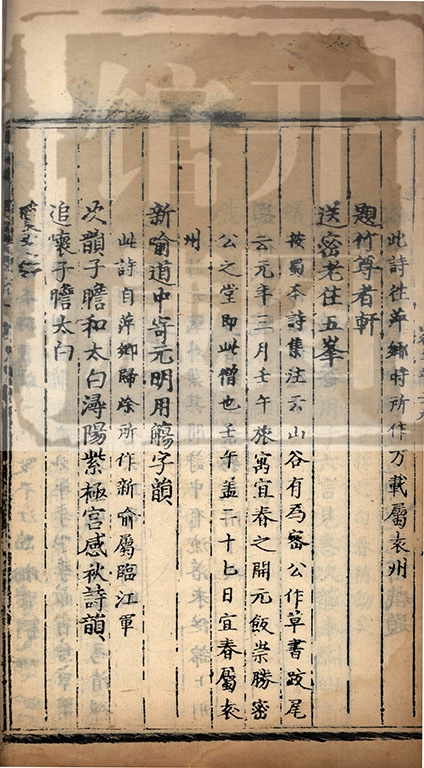 此詩往萍鄉時所作万載屬袁州
題竹尊者軒
送密老住五峯
按蜀本詩集注云山谷有為密公作草書跋尾
云元年三月壬午旅寓宜春之開元飯崇勝密
公之堂即此僧也壬午盖二十七日宜春屬袁
州
新喻道中寄元明用觴字韻
此詩自萍鄉歸途所作新喻屬臨江軍
次韻子瞻和太白潯陽紫極宮感秋詩韻
追懷子瞻太白